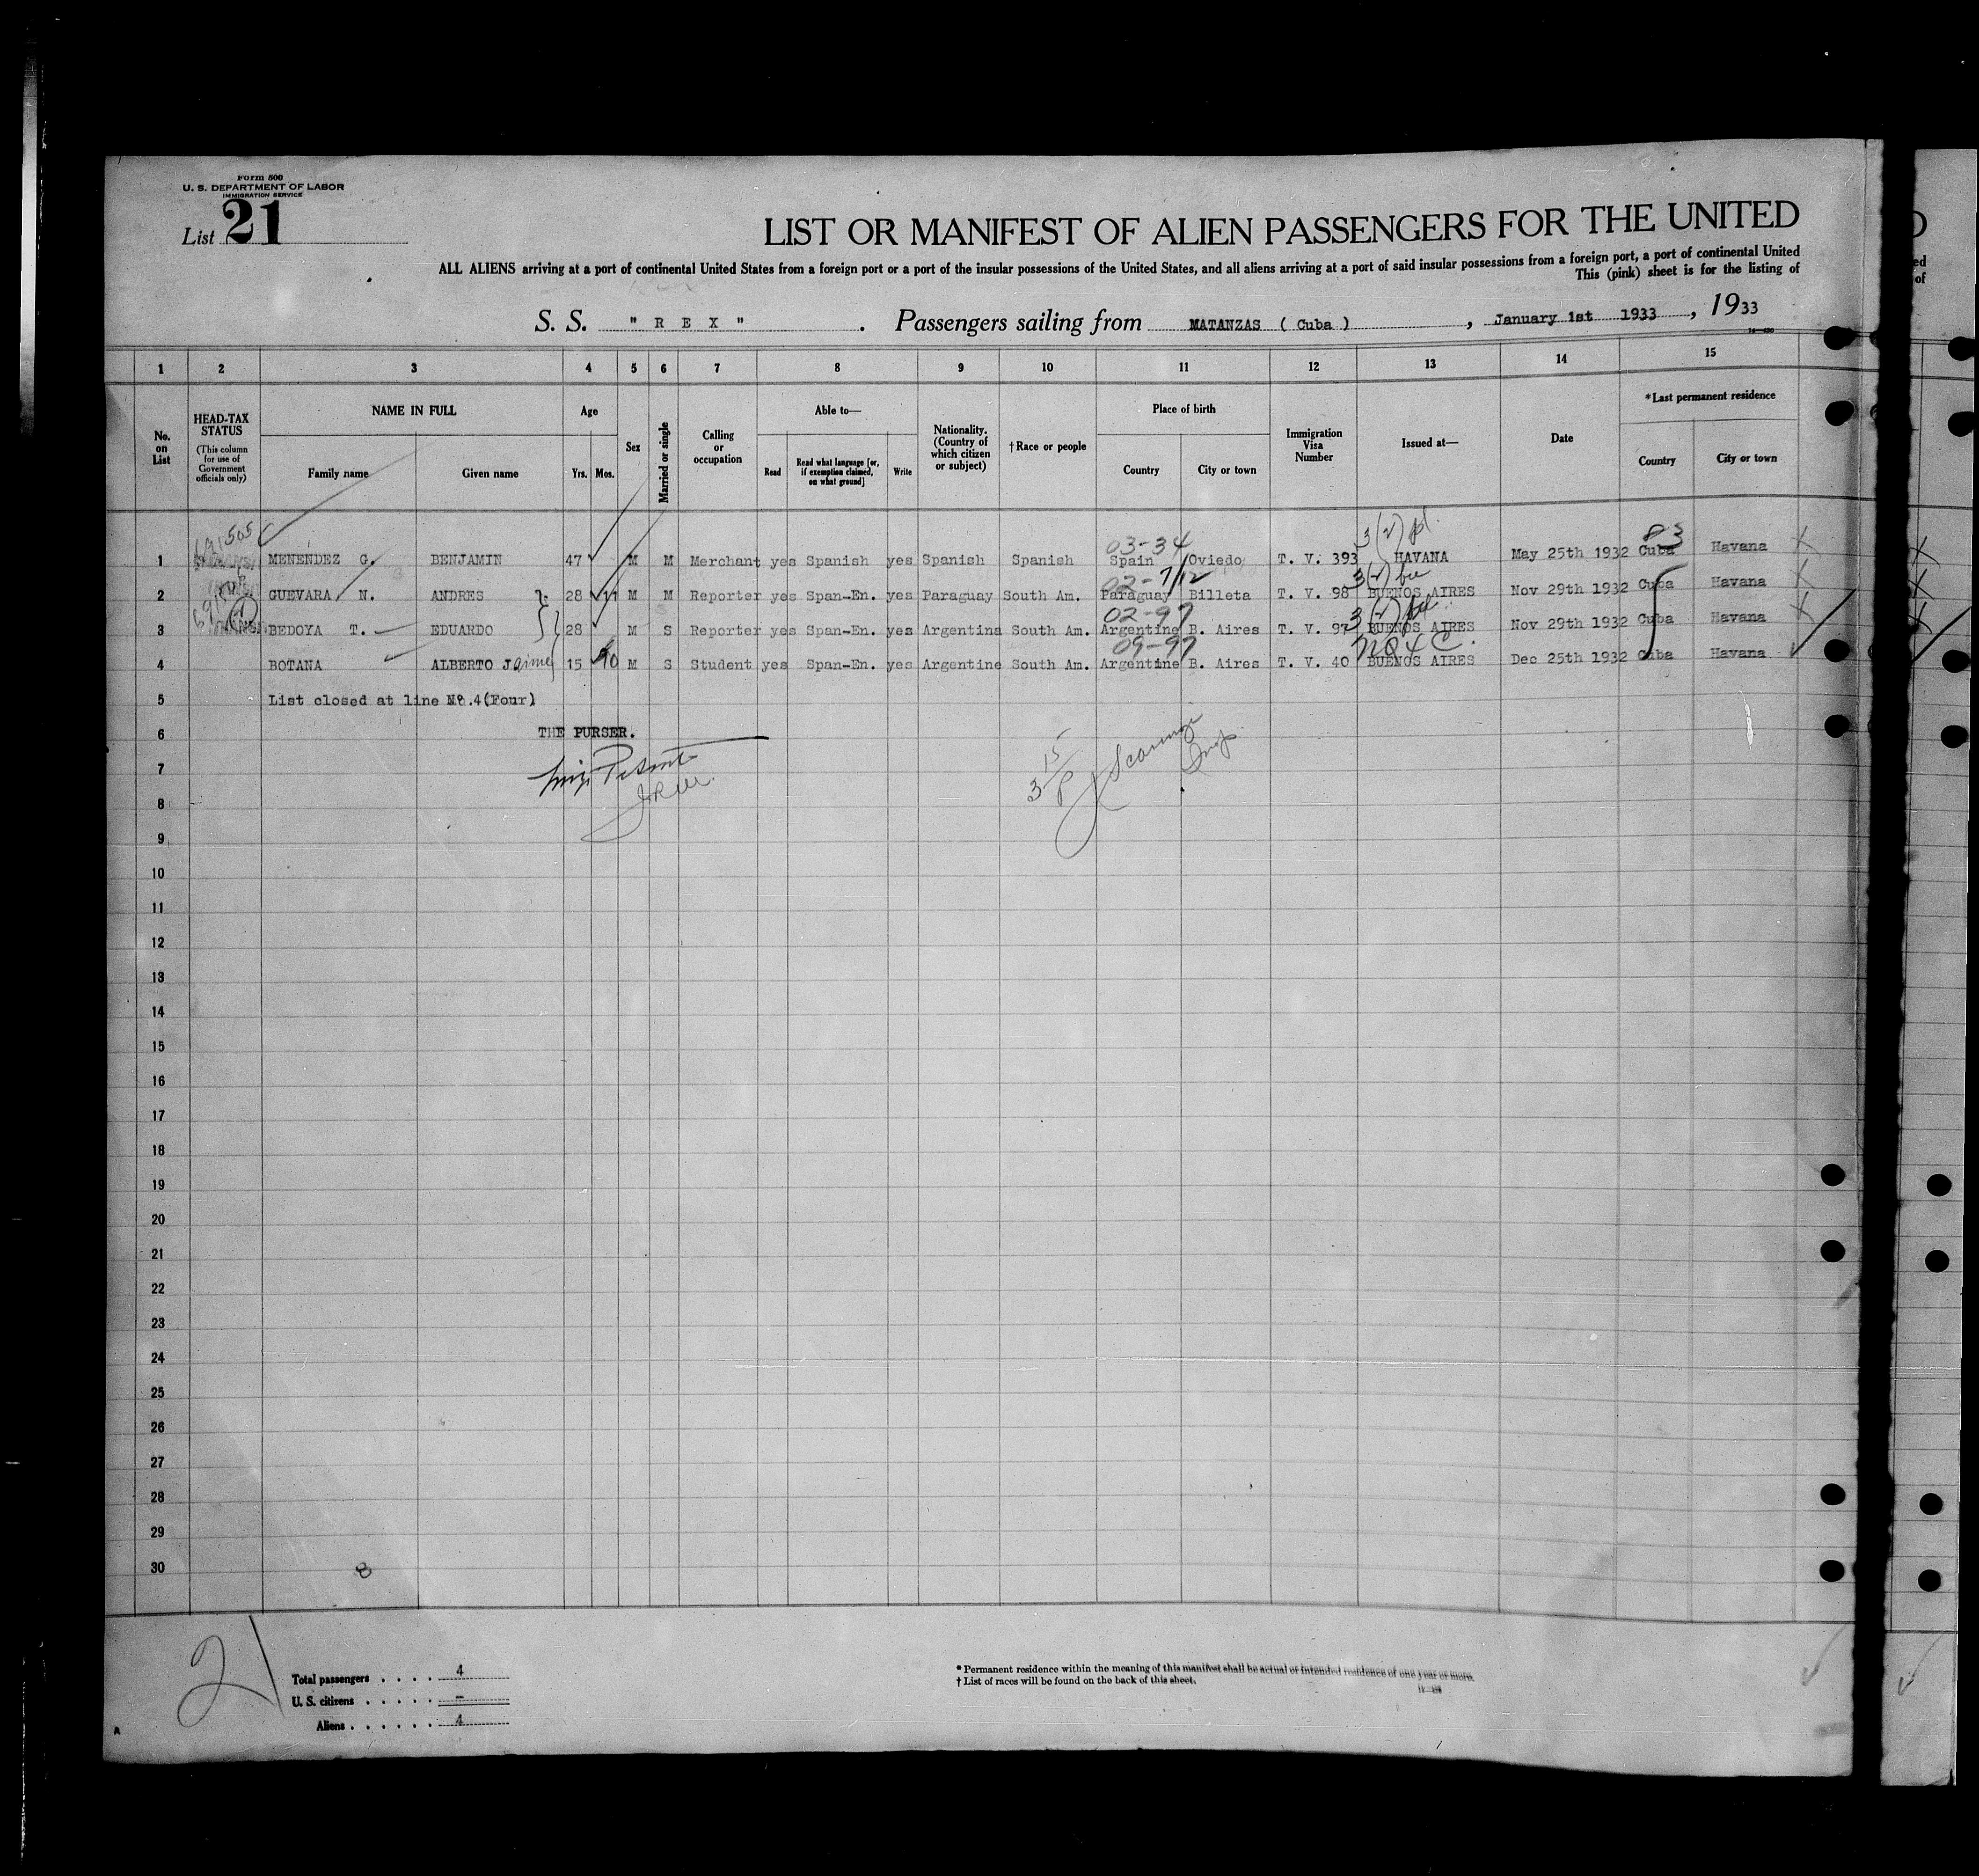 Form 500
U. S. DEPARTMENT OF LABOR
IMMIGRATION SERVICE
List 21
LIST OR MANIFEST OF ALIEN PASSENGERS FOR THE UNITED
ALL ALIENS arriving at a port of continental United States from a foreign port or a port of the insular possessions of the United States, and all aliens arriving at a port of said insular possessions from a foreign port, a port of continental United
This (pink) sheet is for the listing of
S. S. " R E X " . Passengers sailing from MATANZAS ( Cuba ) , January 1st 1933 , 1933
1 2 3 4 5 6 7 8 9 10 11 12 13 14 15
No. on List
HEAD-TAX STATUS
(This column for use of Government officials only)
NAME IN FULL
Family name
Given name
Age
Yrs. Mos.
Sex
Married or single
Calling or occupation
Able to—
Read
Read what language [or, if exemption claimed, on what ground]
Write
Nationality. (Country of which citizen or subject)
† Race or people
Place of birth
Country
City or town
Immigration Visa Number
Issued at—
Date
*Last permanent residence
Country
City or town
03-34 83
1 MENENDEZ G. BENJAMIN 47 M M Merchant yes Spanish yes Spanish Spanish Spain Oviedo T. V. 393 HAVANA May 25th 1932 Cuba Havana
02-
2 GUEVARA N. ANDRES 28 11 M M Reporter yes Span-En. yes Paraguay South Am. Paraguay Billeta T. V. 98 BUENOS AIRES Nov 29th 1932 Cuba Havana
02-97
3 BEDOYA T. EDUARDO 28 M S Reporter yes Span-En. yes Argentina South Am. Argentine B. Aires T. V. 97 BUENOS AIRES Nov 29th 1932 Cuba Havana
09-97
4 BOTANA ALBERTO Jaime 15 10 M S Student yes Span-En. yes Argentine South Am. Argentine B. Aires T. V. 40 BUENOS AIRES Dec 25th 1932 Cuba Havana
5 List closed at line No.4(Four)
6 THE PURSER.
7
8
9
10
11
12
13
14
15
16
17
18
19
20
21
22
23
24
25
26
27
28
29
30 8
21
Total passengers . . . . 4
U. S. citizens . . . . . —
Aliens . . . . . . 4
* Permanent residence within the meaning of this manifest shall be actual or intended residence of one year or more.
† List of races will be found on the back of this sheet.